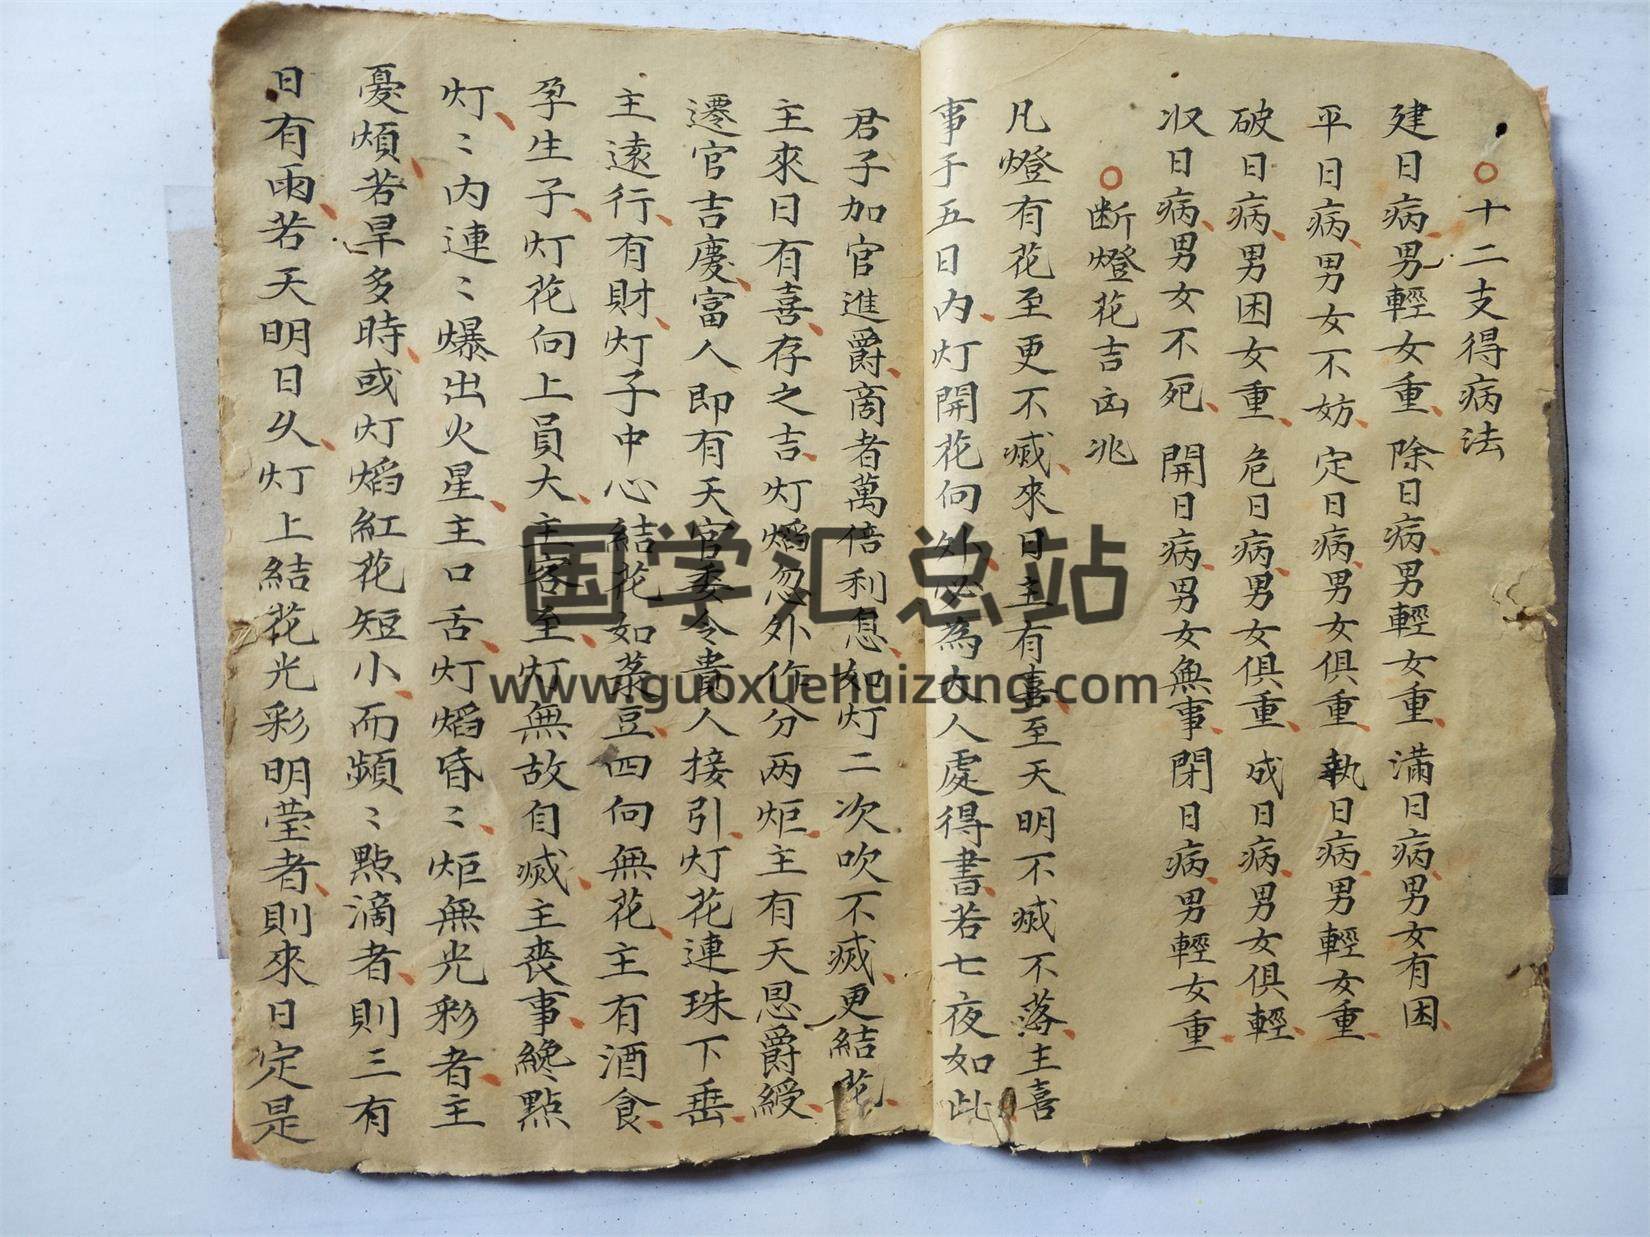 ○十二支得病法
建日病男輕女重 除日病男輕女重 滿日病男女有困
平日病男女不妨 定日病男女俱重 執日病男輕女重
破日病男困女重 危日病男女俱重 成日病男女俱輕
収日病男女不死 開日病男女無事 閉日病男輕女重
○断燈花吉凶兆
凡燈有花至更不滅來日主有喜至天明不滅不落主喜
事于五日内灯開花向外必為大人處得書若七夜如此
君子加官進爵商者萬倍利息如灯二次吹不滅更結花
主來日有喜存之吉灯焰忽外作分两炬主有天恩爵綬
遷官吉慶富人即有天官委令貴人接引灯花連珠下垂
主遠行有財灯子中心結花如菉豆四向無花主有酒食
孕生子灯花向上員大主客至灯無故自滅主喪事纔點
灯〻内連〻爆出火星主口舌灯焰昏〻炬無光彩者主
憂煩若旱多時或灯焰紅花短小而頻〻點滴者則三有
日有雨若天明日久灯上結花光彩明莹者則來日定是
国学汇总站
www.guoxuehuizong.com